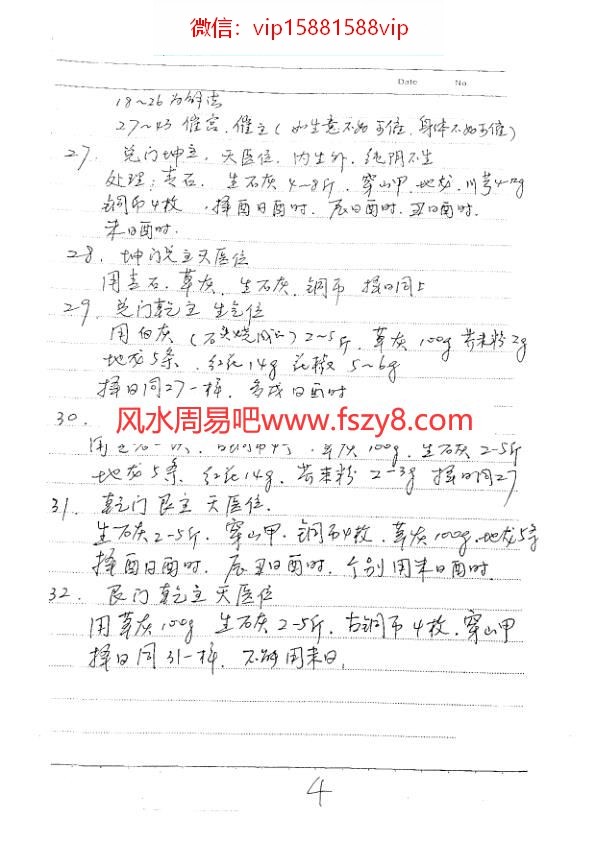 微信：vip15881588vip
Date No.
18~26为解法
27~43 催宫、催主(如生意不如可催、身体不如可催)
27. 兑门坤主，天医位，内生外，纯阴不生
处理：青石、生石灰 4~8斤、穿山甲、地龙、川芎4~12g
铜币4枚，择酉日酉时、辰日酉时、丑日酉时、
未日酉时.
28. 坤门兑主天医位
用青石、草灰、生石灰、铜币 择日同上
29、兑门乾主 生气位
用白灰(石头烧成的)2~5斤，草灰100g 芥末粉2g
地龙5条、红花14g 花椒 5~6g
择日同27一样，多戌日酉时
30.
风水周易吧www.fszy8.com
草灰100g、生石灰2-5斤
地龙5条、红花14g、芥末粉 2-3g 择日同27
31. 乾门艮主 天医位.
生石灰2-5斤、穿山甲、铜币4枚、草灰100g、地龙5条
择酉日酉时、辰丑日酉时、个别用未日酉时.
32. 艮门乾主天医位
用草灰100g 生石灰2-5斤，古铜币4枚，穿山甲
择日同31一样. 不能用未日.
4